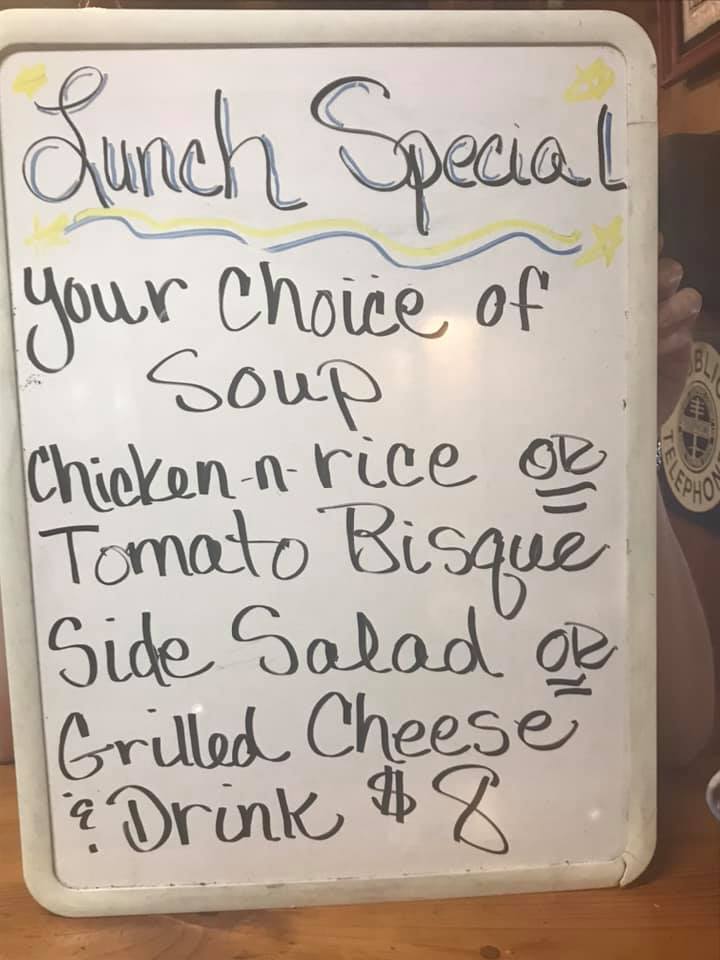 Lunch Special
Your Choice of
Soup
Chicken-n-rice OR
Tomato Bisque
Side Salad OR
Grilled Cheese
& Drink $8
TELEPHON